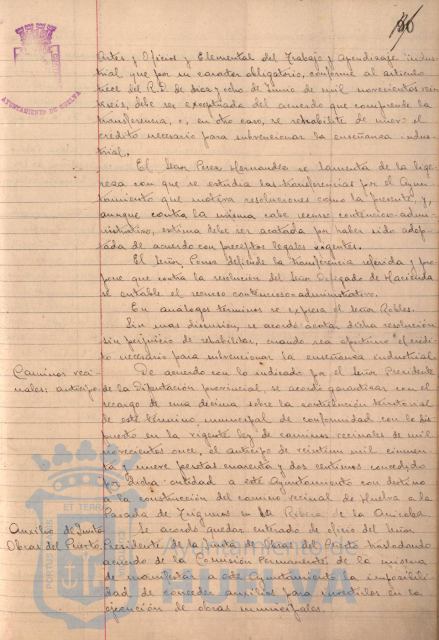 136
AYUNTAMIENTO DE HUELVA
Artes y Oficios y Elemental del Trabajo y Aprendizaje indus-
trial que por su caracter obligatorio, conforme al artículo
trece del R.D. de diez y ocho de Junio de mil novecientos vein
tiseis, debe ser exceptuada del acuerdo que comprende la
transferencia, o, en otro caso, se rehabilite de nuevo el
crédito necesario para subvencionar la enseñanza indus-
trial.
El Señor Perez Hernandez se lamenta de la lige-
reza con que se estudia las transferencias por el Ayun-
tamiento que motiva resoluciones como la presente, y,
aunque contra la misma cabe recurso contencioso-admi-
nistrativo, estima debe ser acatada por haber sido adop-
tada de acuerdo con preceptos legales vigentes.
El Señor Ponce defiende la transferencia referida y pro-
pone que contra la resolución del Señor Delegado de Hacienda
se entable el recurso contencioso-administrativo.
En análogos términos se expresa el Señor Robles.
Sin mas discusion, se acordó acatar dicha resolución
sin perjuicio de rehabilitar, cuando sea oportuno el crédito
necesario para subvencionar la enseñanza industrial
Caminos veci-
nales: anticipo
De acuerdo con lo indicado por el Señor Presidente
de la Diputación provincial, se acordó garantizar con el
recargo de una decima sobre la contribución territorial
de este término municipal de conformidad con lo dis-
puesto en la vigente ley de caminos vecinales de mil
novecientos once, el anticipo de veintiun mil cincuen-
ta y nueve pesetas cuarenta y dos centimos concedido
por dicha entidad a este Ayuntamiento con destino
a la construcción del camino vecinal de Huelva a la
Pasada de Trigueros en la Ribera de la Anicoba
Auxilio de Junta
Obras del Puerto.
Se acordó quedar enterado de oficio del Señor
Presidente de la Junta de Obras del Puerto trasladando
acuerdo de la Comisión Permanente de la misma
de manifestar a este Ayuntamiento la imposibili-
dad de conceder auxilios para invertirlos en la
ejecución de obras municipales.
Ayuntamiento de
HUELVA